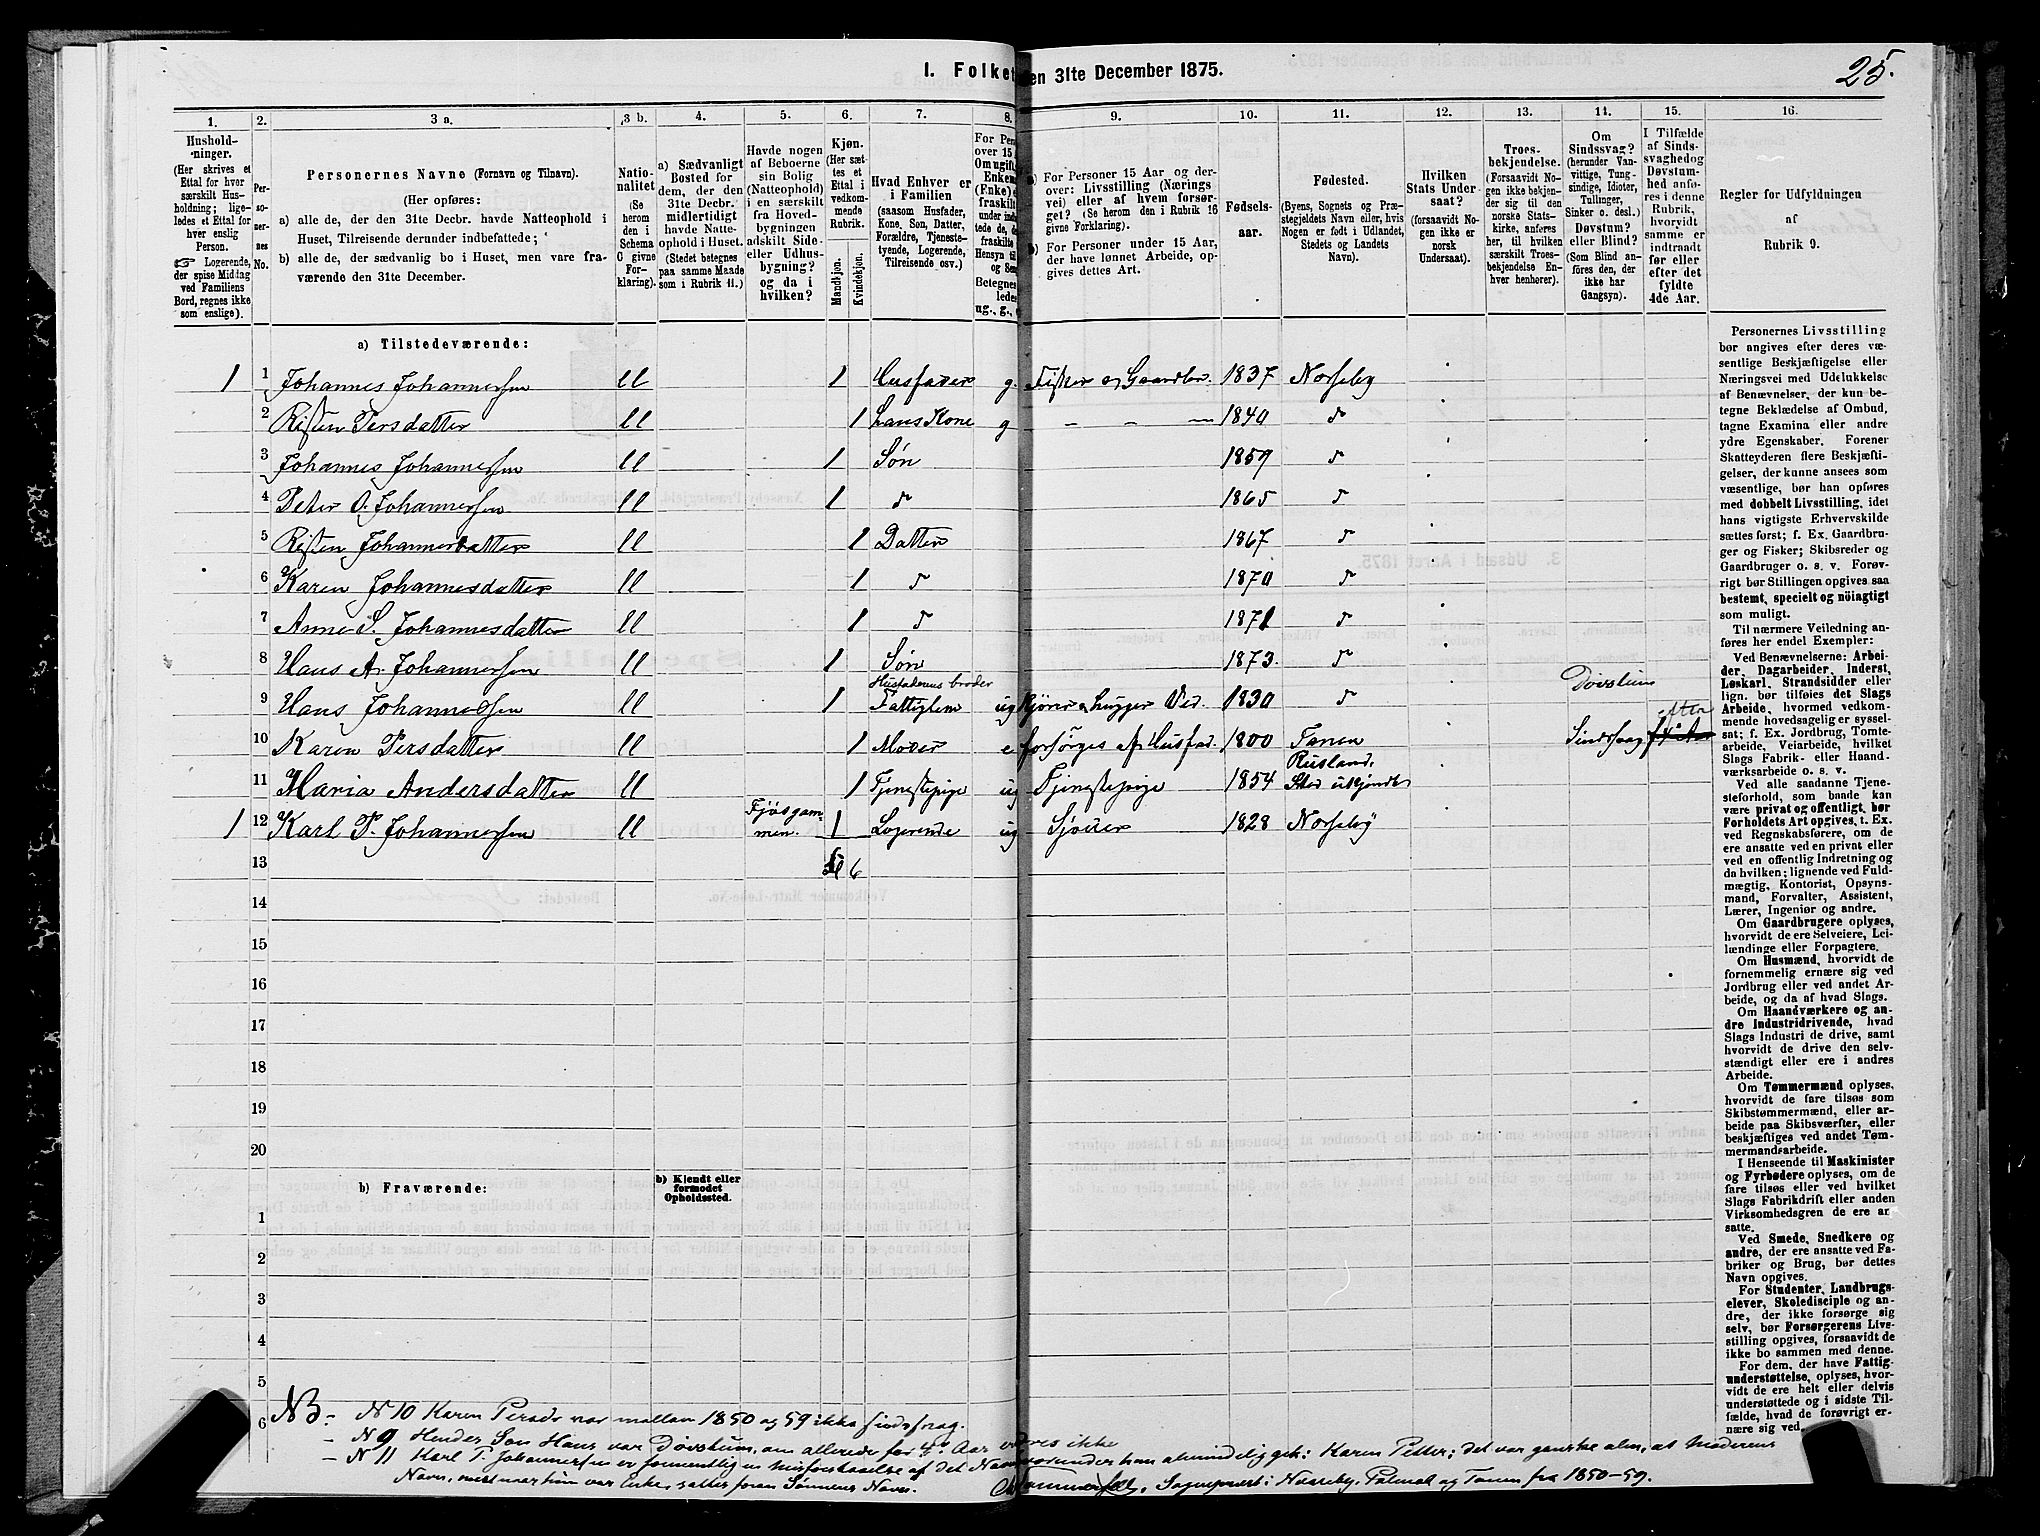 I. Folket
en 31te December 1875.
25.
1.
Hushold-
ninger.
(Her skrives et
Ettal for hver
særskilt Hus-
holdning; lige-
ledes et Ettal for
hver enslig
Person.
Logerende,
der spise Middag
ved Familiens
Bord, regnes ikke
som enslige).
2.
Per-
so-
ner-
nes
No.
3 a.
Personernes Navne (Fornavn og Tilnavn).
(Her opføres:
a) alle de, der den 31te Decbr. havde Natteophold i
Huset, Tilreisende derunder indbefattede;
b) alle de, der sædvanlig bo i Huset, men vare fra-
værende den 31te December.
3 b.
Natio-
nalitet
(Se
herom
den i
Schema
C givne
For-
klaring).
4.
a) Sædvanligt
Bosted for
dem, der den
31te Decbr.
midlertidigt
havde Natte-
ophold i Huset.
(Stedet betegnes
paa samme Maade
som i Rubrik 11.)
5.
Havde nogen
af Beboerne
sin Bolig
(Natteophold)
i en særskilt
fra Hoved-
bygningen
adskilt Side-
eller Udhus-
bygning?
og da i
hvilken?
6.
Kjøn.
(Her sæt-
tes et
Ettal i
vedkom-
mende
Rubrik.
Mandkjøn.
Kvindekjøn.
7.
Hvad Enhver er
i Familien
(saasom Husfader,
Kone, Søn, Datter,
Forældre, Tjeneste-
tyende, Logerende,
Tilreisende osv.)
8.
For Per
over 15
Om ugift
Enkem
(Enke) e
fraskilt
9.
a) For Personer 15 Aar og der-
over: Livsstilling (Nærings-
vei) eller af hvem forsør-
get? (Se herom den i Rubrik 16
givne Forklaring).
b) For Personer under 15 Aar,
der have lønnet Arbeide, op-
gives dettes Art.
10.
Fødsels-
aar.
11.
Fødested.
(Byens, Sognets og Præ-
stegjeldets Navn eller, hvis
Nogen er født i Udlandet,
Stedets og Landets
Navn).
12.
Hvilken
Stats Under-
saat?
(forsaavidt No-
gen ikke er
norsk
Undersaat).
13.
Troes-
bekjendelse.
(Forsaavidt No-
gen ikke bekjen-
der sig til den
norske Stats-
kirke, anføres
her, til hvilken
særskilt Troes-
bekjendelse En-
hver henhører).
14.
Om
Sindssvag?
(herunder Van-
vittige, Tung-
sindige, Idioter,
Tullinger,
Sinker o. desl.)
Døvstum?
eller Blind?
(Som Blind an-
føres den, der
ikke har
Gangsyn).
15.
I Tilfælde
af Sinds-
svaghed og
Døvstum-
hed anfø-
res i denne
Rubrik,
hvorvidt
samme er
indtraadt
før eller
efter det
fyldte
4de Aar.
16.
Regler for Udfyldningen
af
Rubrik 9.
a) Tilstedeværende:
1 1 Johannes Johannessen ll 1 Husfader g. Fisker og Gaardbr. 1837 Næsseby
2 Risten Persdatter ll 1 hans Kone g — — — 1840 do
3 Johannes Johannessen ll 1 Søn 1859 do
4 Peter O. Johannessen ll 1 do 1865 do
5 Risten Johannesdatter ll 1 Datter 1867 do
6 Karen Johannesdatter ll 1 do 1870 do
7 Anne S. Johannesdatter ll 1 do 1871 do
8 Hans A. Johannessen ll 1 Søn 1873. do
9 Hans Johannessen ll 1 Husfaderens broder Fattiglem ug Kjører og hugger Ved. 1830 do Døvstum
10 Karen Persdatter ll 1 Moder e forsørges af Husfad. 1800 Tanen Sindssvag efter
11 Maria Andersdatter ll 1 Tjenestepige ug Tjenestepige 1854 Rusland. Sted ukjendt
1 12 Karl P. Johannessen ll Fjøsgammen. 1 Logerende ug 1828 Næsseby
13 6
14
15
16
17
18
19
20
b) Fraværende:
b) Kjendt eller
formodet
Opholdssted.
1
2
3
4
5
6
Personernes Livsstilling
bør angives efter deres væ-
sentlige Beskjæftigelse eller
Næringsvei med Udelukkelse
af Benævnelser, der kun be-
tegne Beklædelse af Ombud,
tagne Examina eller andre
ydre Egenskaber. Forener
Skatteyderen flere Beskjæfti-
gelser, der kunne ansees som
væsentlige, bør han opføres
med dobbelt Livsstilling, idet
hans vigtigste Erhvervskilde
sættes først; f. Ex. Gaardbru-
ger og Fisker; Skibsreder og
Gaardbruger o. s. v. Forøv-
rigt bør Stillingen opgives saa
bestemt, specielt og nöiagtigt
som muligt.
Til nærmere Veiledning an-
føres her endel Exempler:
Ved Benævnelserne: Arbei-
der, Dagarbeider, Inderst,
Løskarl, Strandsidder eller
lign. bør tilføies det Slags
Arbeide, hvormed vedkom-
mende hovedsagelig er syssel-
sat; f. Ex. Jordbrug, Tomte-
arbeide, Veiarbeide, hvilket
Slags Fabrik- eller Haand-
værksarbeide o. s. v.
Ved alle saadanne Tjene-
steforhold, som baade kan
være privat og offentligt, bør
Forholdets Art opgives, t. Ex.
ved Regnskabsførere, om de
ere ansatte ved en privat eller
ved en offentlig Indretning og
da hvilken; lignende ved Fuld-
mægtig, Kontorist, Opsyns-
mand, Forvalter, Assistent,
Lærer, Ingeniør og andre.
Om Gaardbrugere oplyses,
hvorvidt de ere Selveiere, Lei-
lændinge eller Forpagtere.
Om Husmænd, hvorvidt de
fornemmelig ernære sig ved
Jordbrug eller ved andet Ar-
beide, og da af hvad Slags.
Om Haandværkere og an-
dre Industridrivende, hvad
Slags Industri de drive, samt
hvorvidt de drive den selv-
stændigt eller ere i andres
Arbeide.
Om Tømmermænd oplyses,
hvorvidt de fare tilsøs som
Skibstømmermænd, eller ar-
beide paa Skibsværfter, eller
beskjæftiges ved andet Tøm-
mermandsarbeide.
I Henseende til Maskinister
og Fyrbødere oplyses, om de
fare tilsøs eller ved hvilket
Slags Fabrikdrift eller anden
Virksomhedsgren de ere an-
satte.
Ved Smede, Snedkere og
andre, der ere ansatte ved Fa-
briker og Brug, bør dettes
Navn opgives.
For Studenter, Landbrugs-
elever, Skoledisciple og an-
dre, der ikke forsørge sig
selv, bør Forsørgerens Livs-
stilling opgives, forsaavidt de
ikke bo sammen med denne.
For dem, der have Fattig-
understøttelse, oplyses, hvor-
vidt de ere helt eller delvis
understøttede og i sidste Til-
fælde, hvad de forøvrigt er-
nære sig ved.
NB: — N 10 Karen Persdr var mellem 1850 og 59 ikke sindssvag.
— N 9 Hendes Søn Hans var Døvstum, om allerede før 4de Aar vides ikke
— N 11 Karl P. Johannessen er formentlig en misforstaaelse af det Navn hvorunder han almindelig gik: Karen Petter; det var ganske alm. at Moderens
Navn, naar hun var Enke, sattes foran Sønnens Navn. Sognepræst i Næsseby, Polmak og Tanen fra 1850–59.